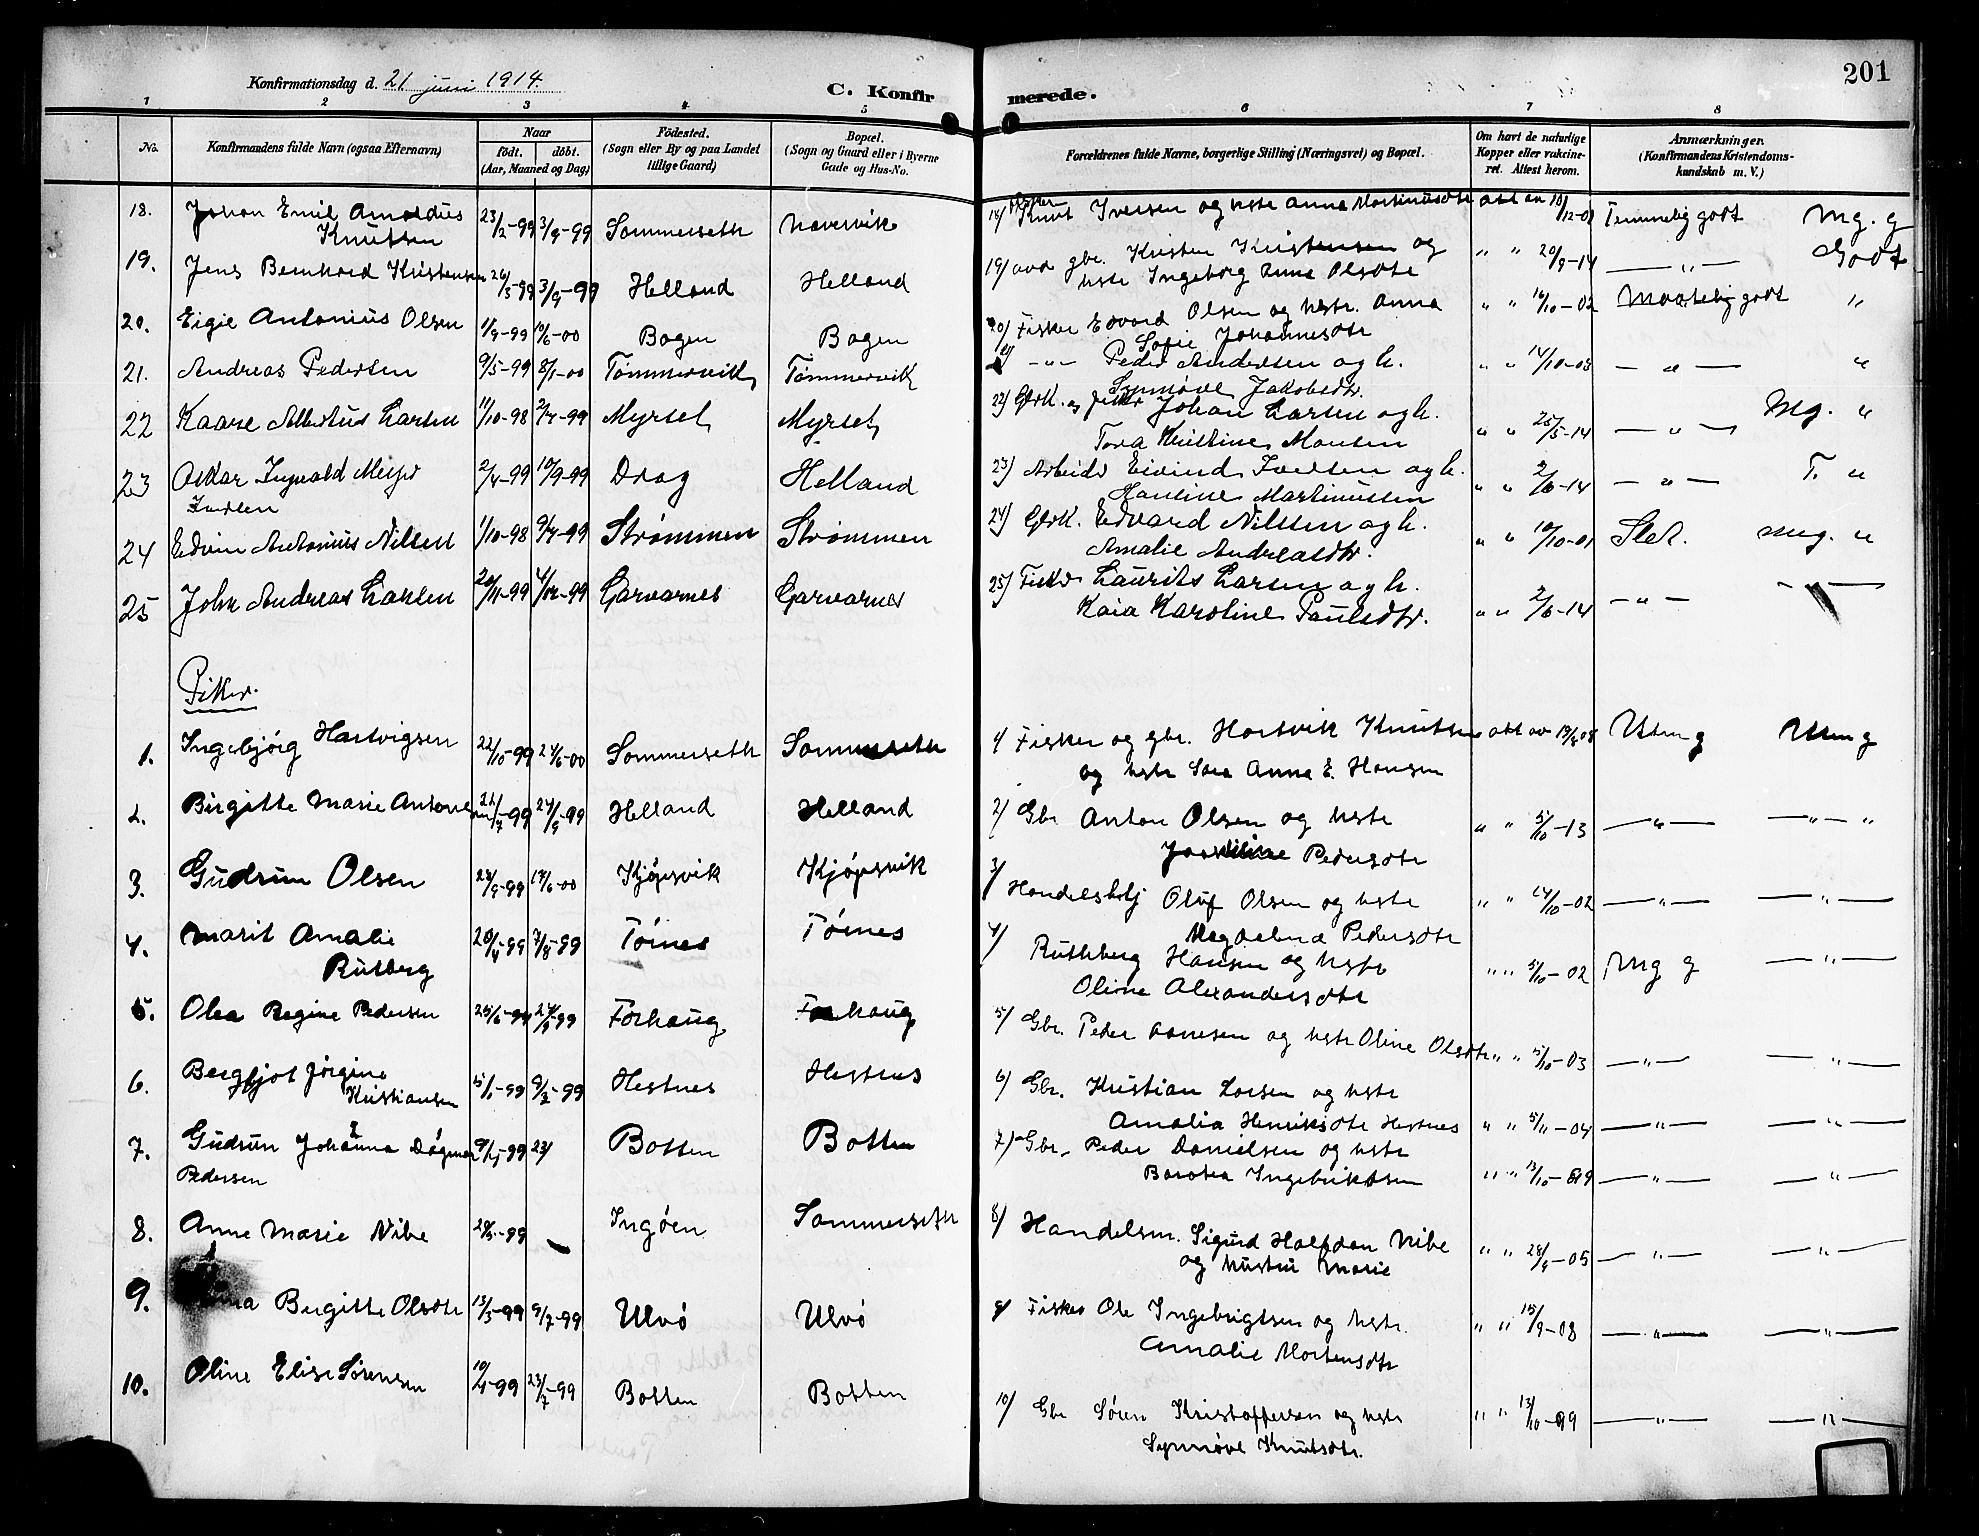 201
Konfirmationsdag d. 21 juni 1914.
C. Konfirmerede.
1 2 3 4 5 6 7 8
No. Konfirmandens fulde Navn (ogsaa Efternavn) Naar født. døbt. (Aar, Maaned og Dag) Fødested. (Sogn eller By og paa Landet tillige Gaard) Bopæl. (Sogn og Gaard eller i Byerne Gade og Hus-No. Forældrenes fulde Navne, borgerlige Stilling (Næringsvei) og Bopæl. Om havt de naturlige Kopper eller vakcineret. Attest herom. Anmærkninger. (Konfirmandens Kristendomskundskab m. V.)
18. Johan Emil Arnoldus 23/2-99 3/9-99 Sommerseth 18/ Fisker Knut Iversen og hstr Anna Martinusdtr att av 10/12-01 Temmelig godt Mg. g
Knutsen
19. Jens Bernhard Kristensen 26/5-99 3/9-99 Helland Helland 19/ gbr. Kristen Kristensen og " " 20/9-14 — " — Godt
hstr Ingeborg Anna Olsdtr
20. Eigil Antonius Olsen 11/9-99 10/6-00 Bogen Bogen 20/ Fisker Edvard Olsen og hstr. Anna " " 16/10-02 Maatelig godt "
Sofie Johannesdtr
21. Andreas Pedersen 9/5-99 8/1-00 Tømmervik Tømmervik 21/ -"- Peder Andersen og h. " " 14/10-03 — " — "
Synnøve Jakobsdtr.
22 Kaare Albertus Larsen 11/10-98 2/4-99 Myrset Myrset 22/ Grk. og fisker Johan Larsen og h. " " 25/5-14 — " — Mg. "
Tora Kristine Monsen
23 Oskar Ingvald Meyer 2/4-99 10/9-99 Drag Helland 23/ Arbeider Eivind Iversen og h. " " 2/6-14 — " — T. "
Iversen
Hansine Martinussen
24 Edvin Antonius Nilsen 1/10-98 9/4-99 Strømmen Strømmen 24/ Grk. Edvard Nilsen og h. " " 10/10-01 Slet. Mg. "
Amalie Andreasdtr.
25 John Andreas Larsen 20/11-99 Garvarnes Garvarnes 25/ Fisker Laurits Larsen og h. " " 2/6-14 — " — — " —
Kaia Karoline Paulsdtr.
Piker.
1. Ingebjørg Hartvigsen 22/10-99 24/6-00 Sommerseth Sommerseth 1/ Fisker og gbr. Hartvik Knutsen att av Utm g Utm g
og hstr Sara Anna E. Hansen
2. Birgitte Marie Antonsen 24/9-99 Helland Helland 2/ Gbr Anton Olsen og hstr " " 5/10-13 — " — — " — "
Pedersdtr
3. Gudrun Olsen 17/6-00 Kjøpsvik Kjøpsvik 3/ Handelsbetj Oluf Olsen og hstr " " 14/10-02 — " — — " —
Magdalena Pedersdtr
4. Marit Amalie 20/4-99 7/8-99 Tøines Tøines 4/ Rutberg Hansen og hstr " " 5/10-02 Mg g — " —
Rutberg
Oline Alexandersdtr
5. Olea Regine Pedersen 25/6-99 24/9-99 Forhaug Forhaug 5/ Gbr. Peder og hstr Oline Olsdtr " " 5/10-03 — " — — " —
6. Bergljot Jørgine 5/1-99 9/3-99 Hestnes Hestnes 6/ Gbr. Kristian Larsen og hstr
Kristiansen
Amalia Henriksdtr Hestnes " " 5/11-04 — " — — " —
7. Gudrun Johanna Dagmar 9/5-99 23/ Botten Botten 7/ Gbr. Peder Danielsen og hstr
Pedersen
Barotea Ingebriktsen " " 13/10-99 — " — — " —
8. Anne Marie Nibe 28/5-99 — Ingøen Sommerseth 8/ Handelsm. Sigurd Halfdan Nibe " " 28/9-05 — " — — " —
og hustru Marie
9. Birgitte Olsdtr 13/3-99 9/7-99 Ulvø Ulvø 9/ Fisker Ole Ingebrigtsen og hstr. " " 15/9-08 — " — — " —
Amalie Mortensdtr
10. Oline Elise Sørensen 10/4-99 23/7-99 Botten Botten 10/ Gbr Søren Kristoffersen og hstr " " 13/10-99 — " — — " —
Synnøve Knutsdtr.